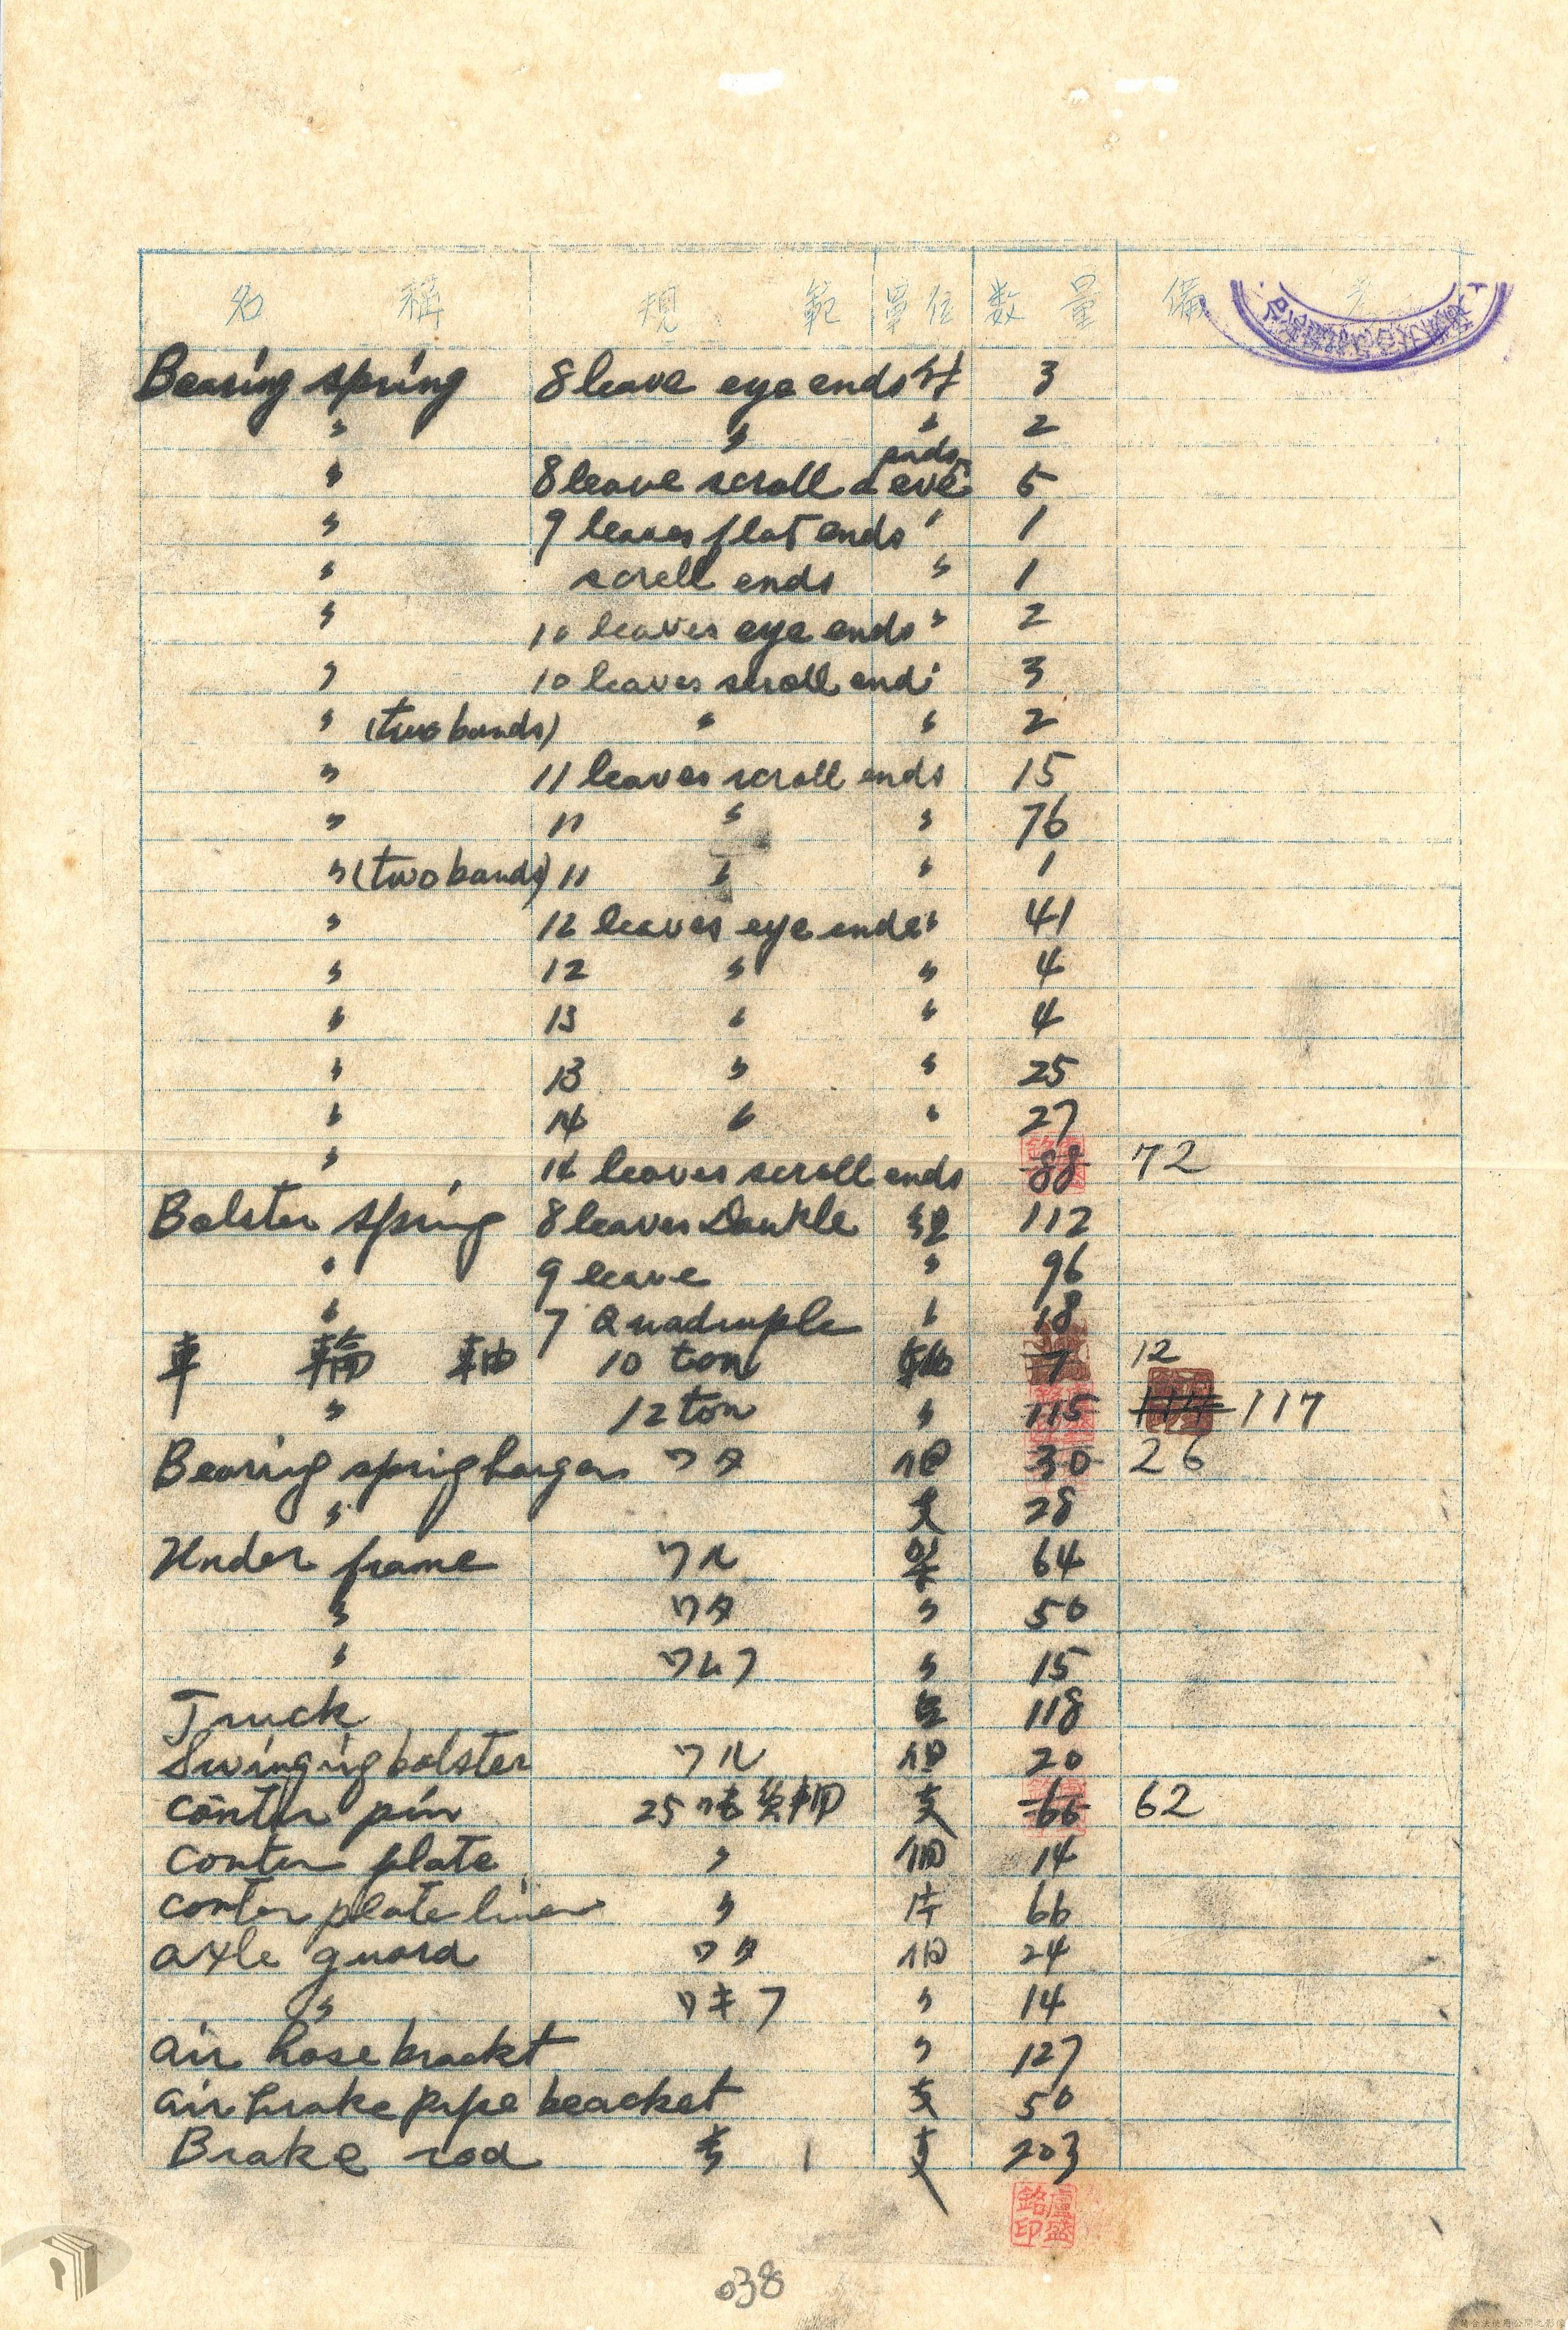 名稱 規範 單位 数量 備考
Bearing spring 8 leave eye ends 3
〃 〃 〃 2
〃 8 leave scroll & eye ends 〃 5
〃 9 leaves flat ends 〃 1
〃 scroll ends 〃 1
〃 10 leaves eye ends 〃 2
〃 10 leaves scroll end 〃 3
〃 (two bands) 〃 〃 2
〃 11 leaves scroll ends 15
〃 11 〃 〃 76
〃 (two bands) 11 〃 〃 1
〃 12 leaves eye ends 〃 41
〃 12 〃 〃 4
〃 13 〃 〃 4
〃 13 〃 〃 25
〃 14 〃 〃 27
〃 14 leaves scroll ends 88 72
Bolster spring 8 leaves Double 組 112
〃 9 leave 〃 96
〃 7 Quadruple 〃 18
車輪軸 10 ton 軸 7 12
〃 12 ton 〃 115 114 117
Bearing sprig hanger ワタ 個 30 26
〃 支 28
Under frame ワル 架 64
〃 ワタ 〃 50
〃 ワムフ 〃 15
Truck 台 118
Swinging bolster ワル 個 20
Center pin 25吨貨車用 支 66 62
Center plate 〃 個 14
Center plate liner 〃 片 66
axle guard ワタ 個 24
〃 ワキフ 〃 14
air hose brackt 〃 127
air brake pipe beacket 支 50
Brake rod 支 203
盧盛銘印
038